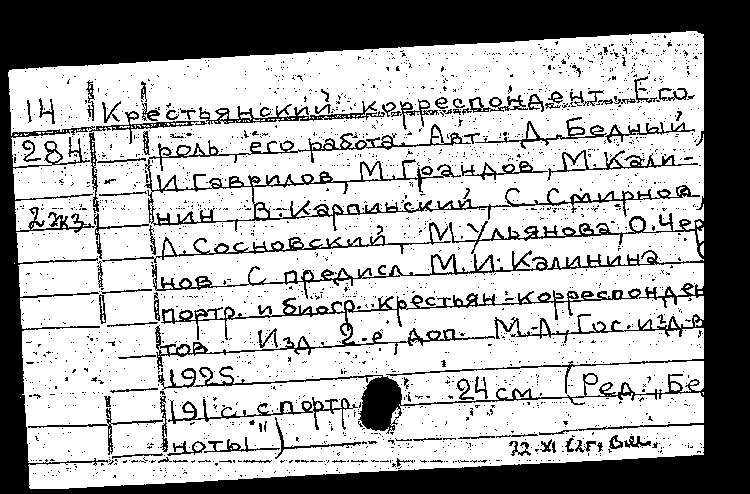 14 Крестьянский корреспондент. Его
284 роль, его работа. Авт.: Д. Бедный,
И. Гаврилов, М. Грандов, М. Кали-
2 экз. нин, В. Карпинский, С. Смирнов,
Л. Сосновский, М. Ульянова, О. Чер
нов. С предисл. М. И. Калинина. (
портр. и биогр. крестьян-корреспонден
тов. Изд. 2-е, доп. М.-Л., Гос. изд-в
1925.
191 с. с портр. 24 см. (Ред. „Бе
ноты")
22.XI 62г.